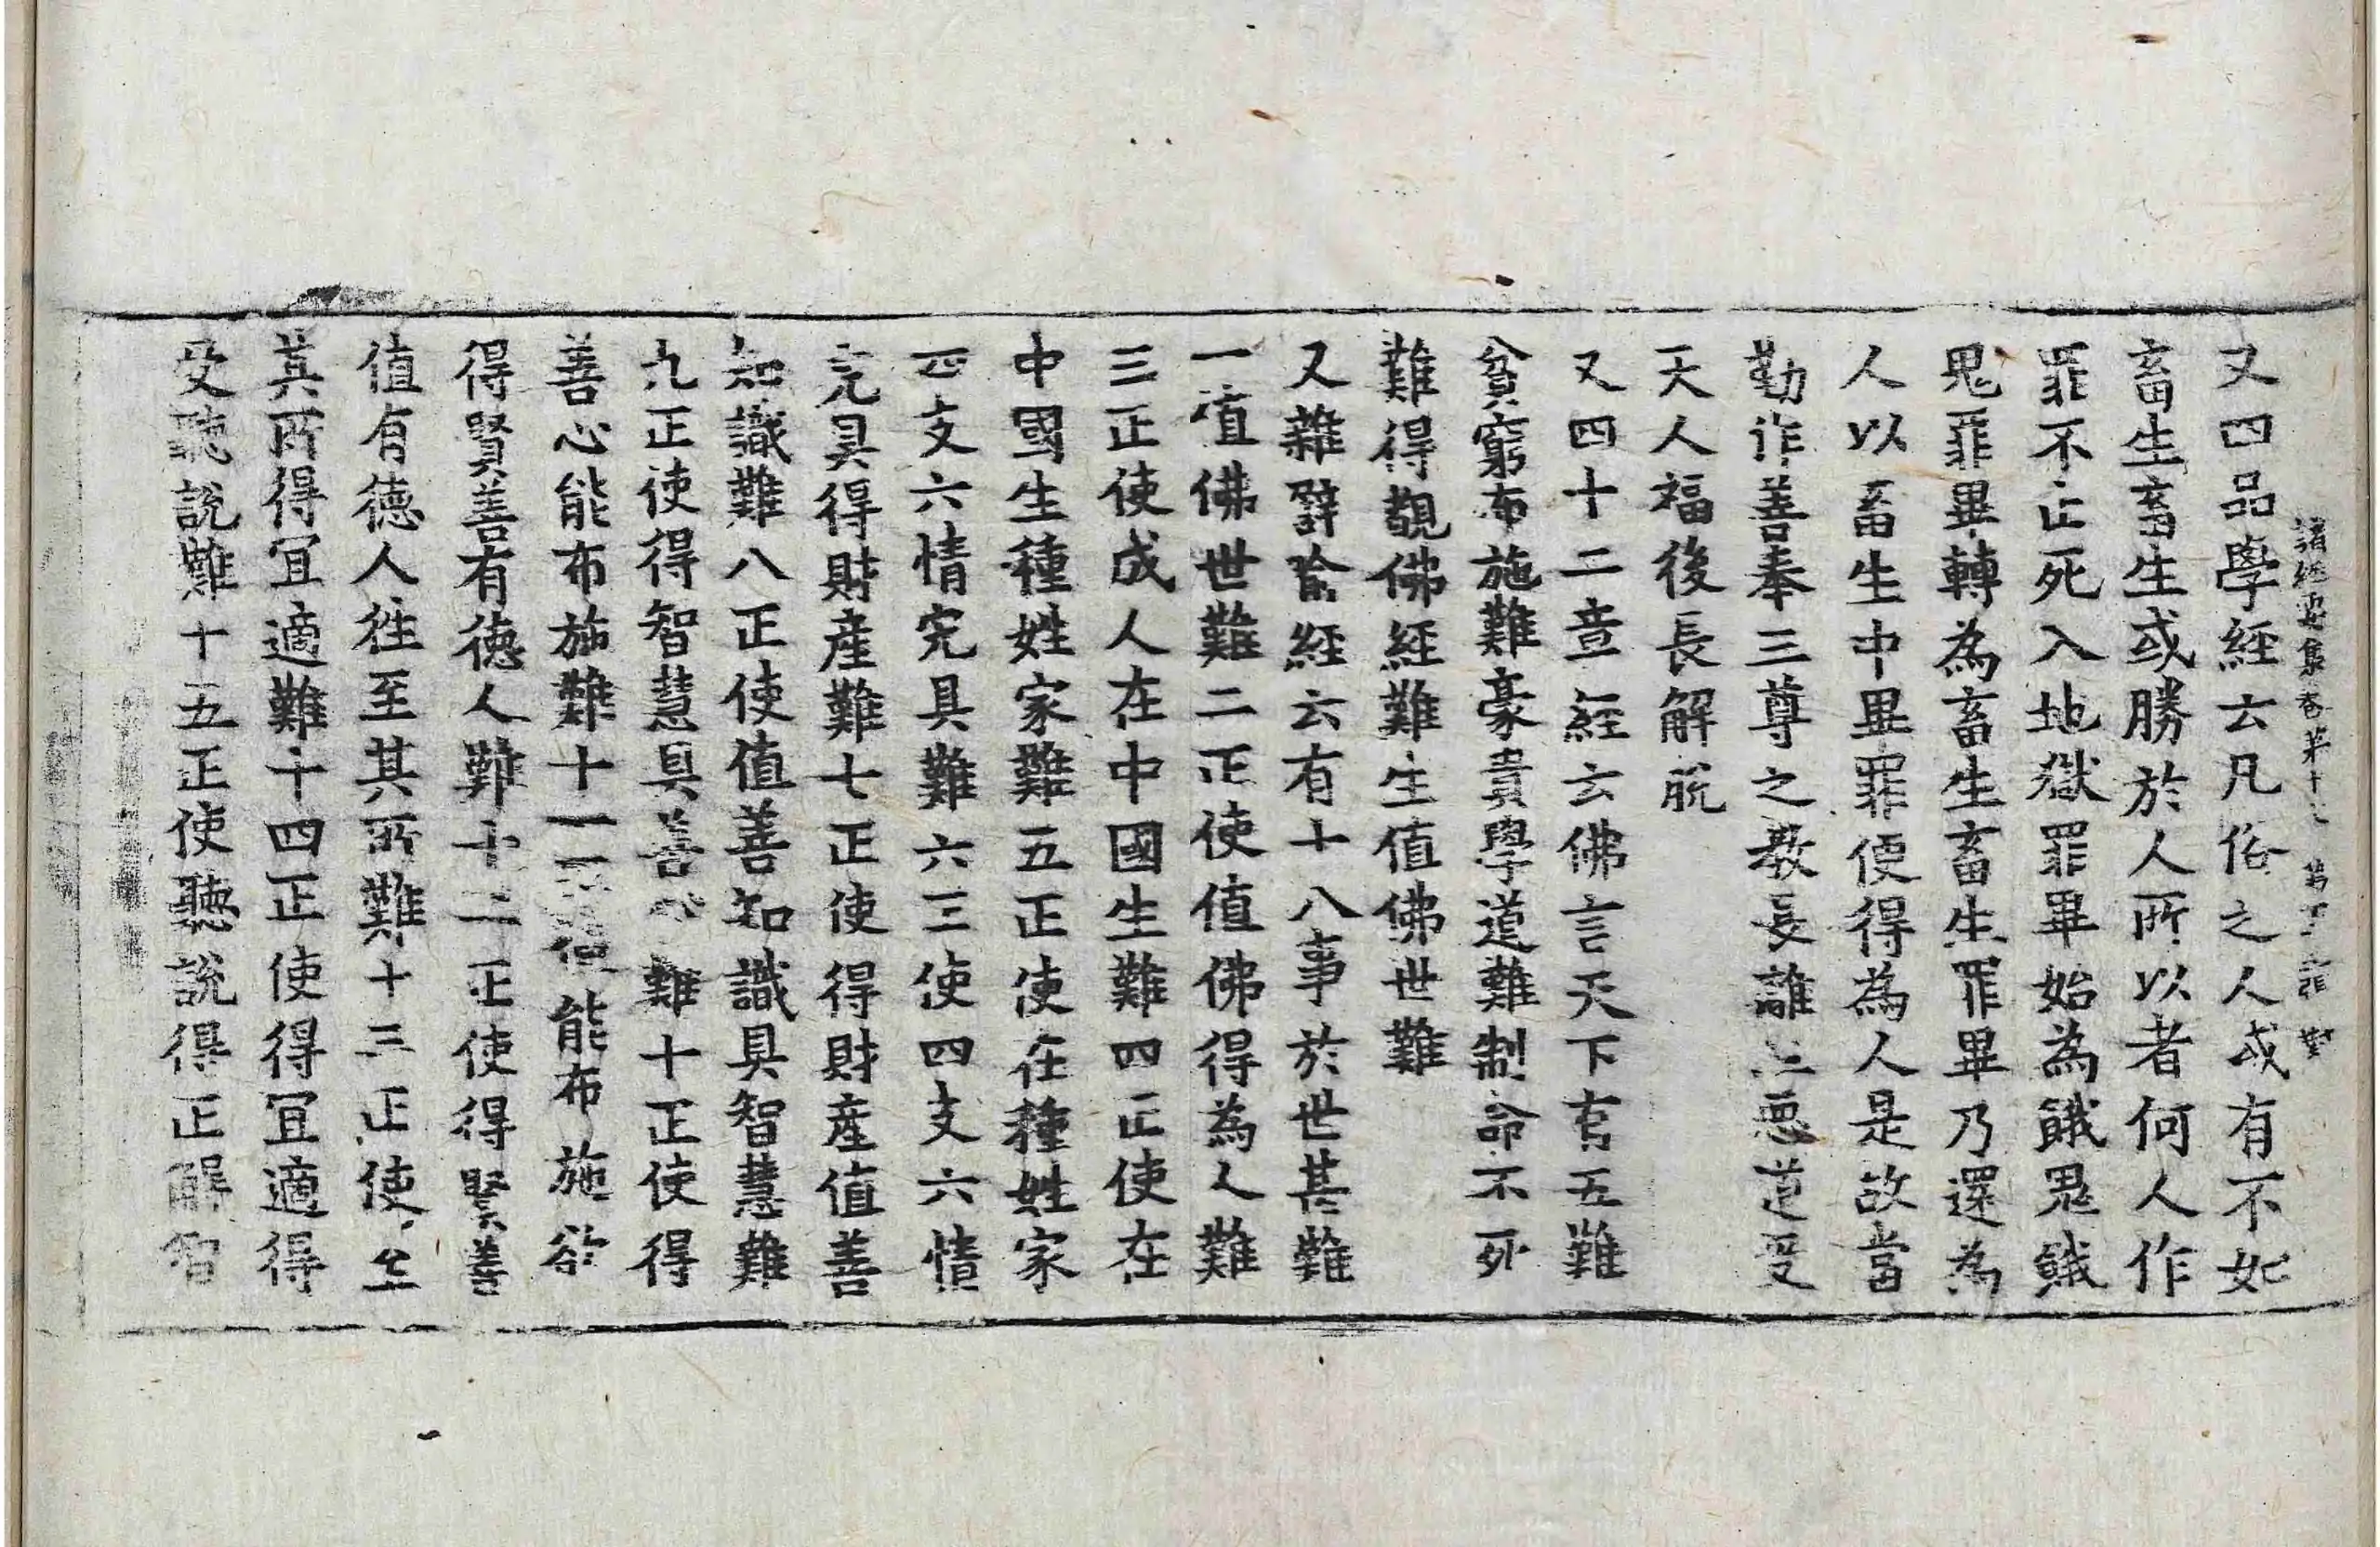 諸經要集卷第十
又四品學經云凡俗之人或有不如
畜生畜生或勝於人所以者何人作
罪不止死入地獄罪畢始為餓鬼餓
鬼罪畢轉為畜生畜生罪畢乃還為
人以畜生中畢罪便得為人是故當
勤作善奉三尊之教長離三惡道受
天人福後長解脫
又四十二章經云佛言天下有五難
貧窮布施難豪貴學道難制命不死
難得覩佛經難生值佛世難
又雜譬喻經云有十八事於世甚難
一值佛世難二正使值佛得為人難
三正使成人在中國生難四正使在
中國生種姓家難五正使在種姓家
四支六情完具難六三使四支六情
完具得財產難七正使得財產值善
知識難八正使值善知識具智慧難
九正使得智慧具善心難十正使得
善心能布施難十一能布施欲
得賢善有德人難十二正使得賢善
值有德人往至其所難十三正使至
其所得宜適難十四正使得宜適得
受聽說難十五正使聽說得正解智